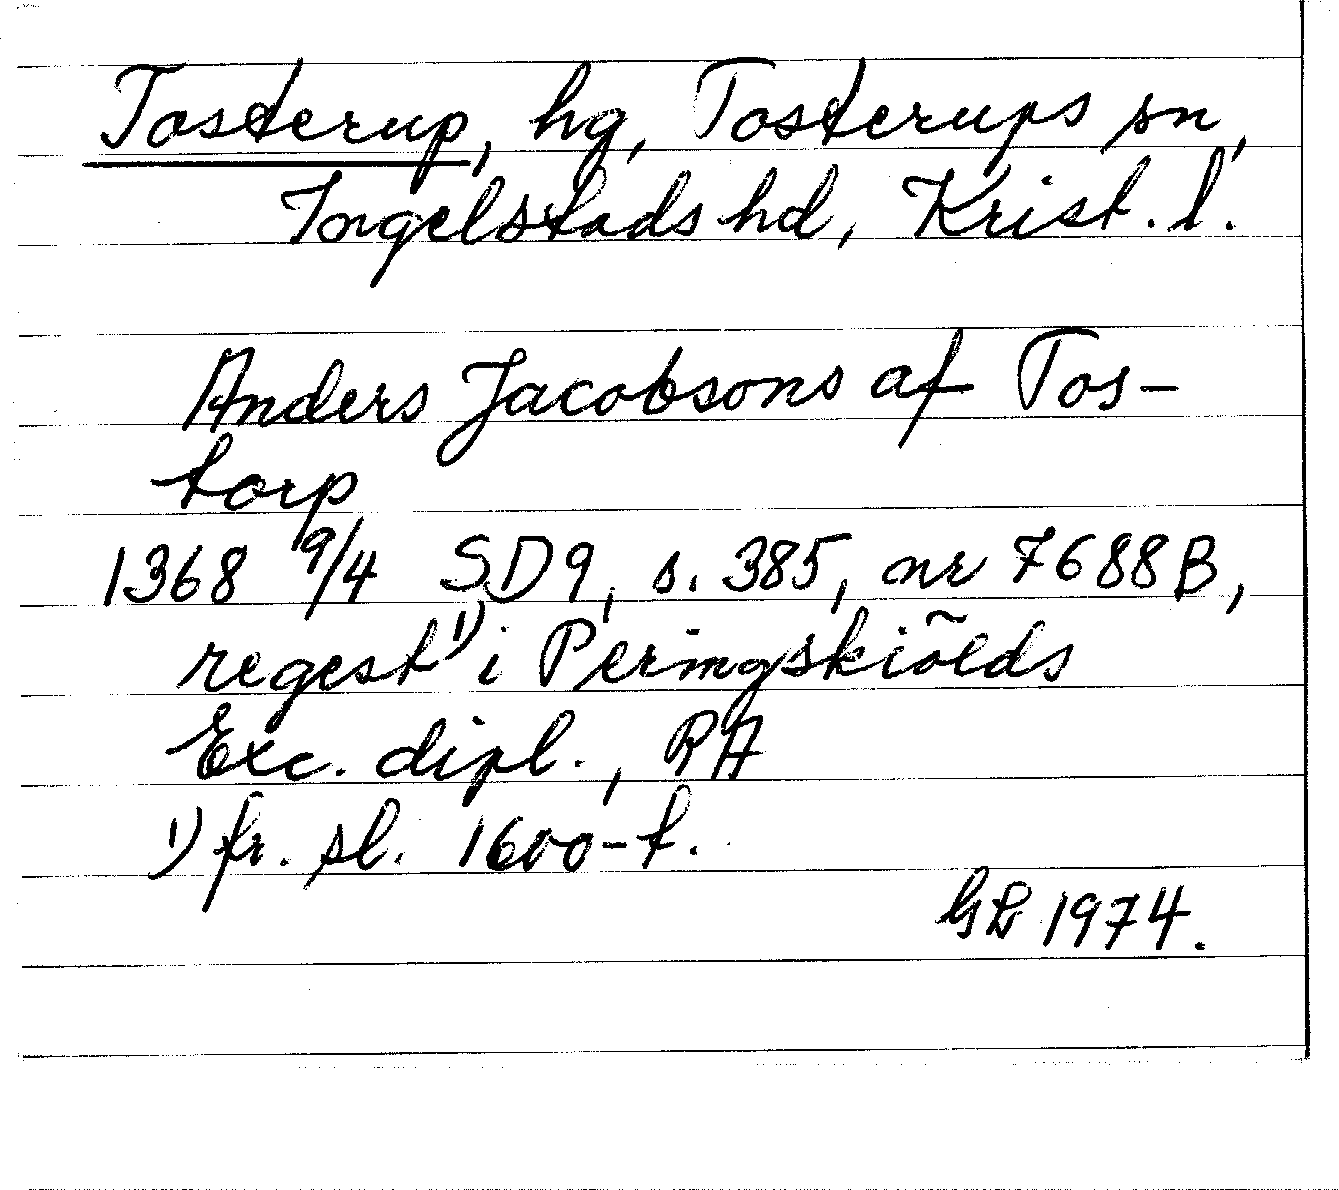 Tosterup, hg, Tosterups sn,
Ingelstads hd, Krist. l.
Anders Jacobsons af Tos-
torp
1368 9/4 SD9, s. 385, nr 7688B,
regest 1) i Peringskiõlds
Exc. dipl., RA
1) fr. sl. 1600-t.
GL 1974.